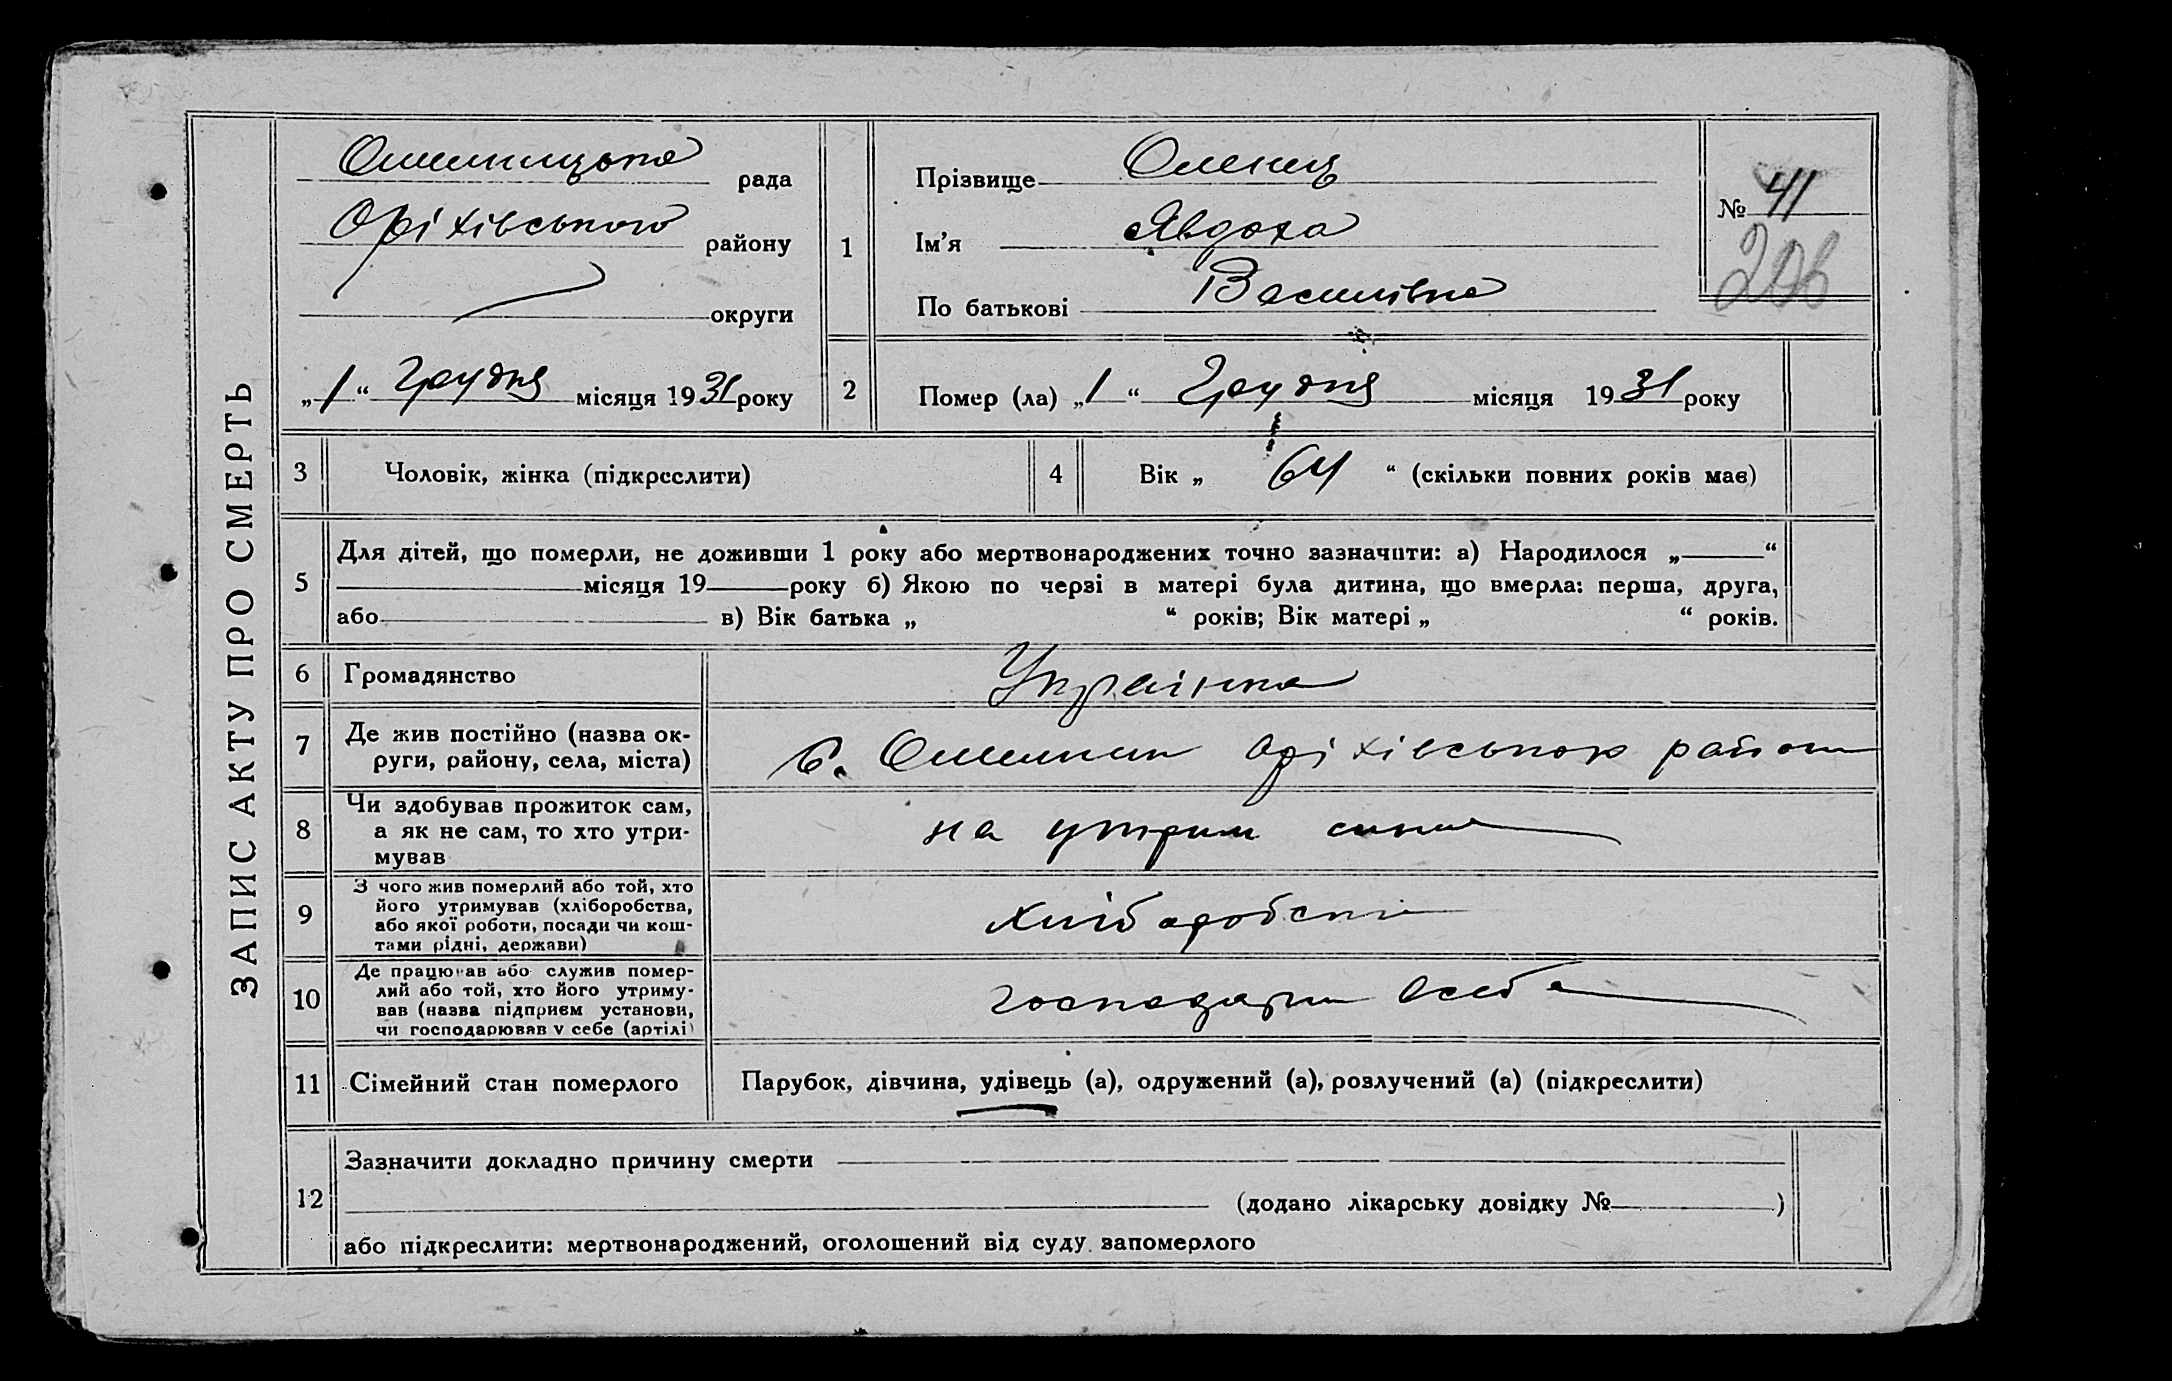 ЗАПИС АКТУ ПРО СМЕРТЬ
Омельницька рада
Оріхівського району
округи
„1“ Грудня місяця 1931 року
1
Прізвище Оленец
Ім’я Явдоха
По батькові Василівна
№ 41
2
Помер (ла) „1“ Грудня місяця 1931 року
3 Чоловік, жінка (підкреслити)
4 Вік „ 64 “ (скільки повних років має)
5
Для дітей, що померли, не доживши 1 року або мертвонароджених точно зазначити: а) Народилося „ “
місяця 19 року б) Якою по черзі в матері була дитина, що вмерла: перша, друга,
або в) Вік батька „ “ років; Вік матері „ “ років.
6 Громадянство Українка
7 Де жив постійно (назва ок-
руги, району, села, міста)
с. Омельник Оріхівськог район
8 Чи здобував прожиток сам,
а як не сам, то хто утри-
мував
на утрим сина
9 З чого жив померлий або той, хто
його утримував (хліборобства,
або якої роботи, посади чи кош-
тами рідні, держави)
Хліборобства
10 Де працював або служив помер-
лий або той, хто його утриму-
вав (назва підприєм установи,
чи господарював у себе (артілі)
господарш
11 Сімейний стан померлого Парубок, дівчина, удівець (а), одружений (а), розлучений (а) (підкреслити)
12
Зазначити докладно причину смерти
(додано лікарську довідку № )
або підкреслити: мертвонароджений, оголошений від суду запомерлого